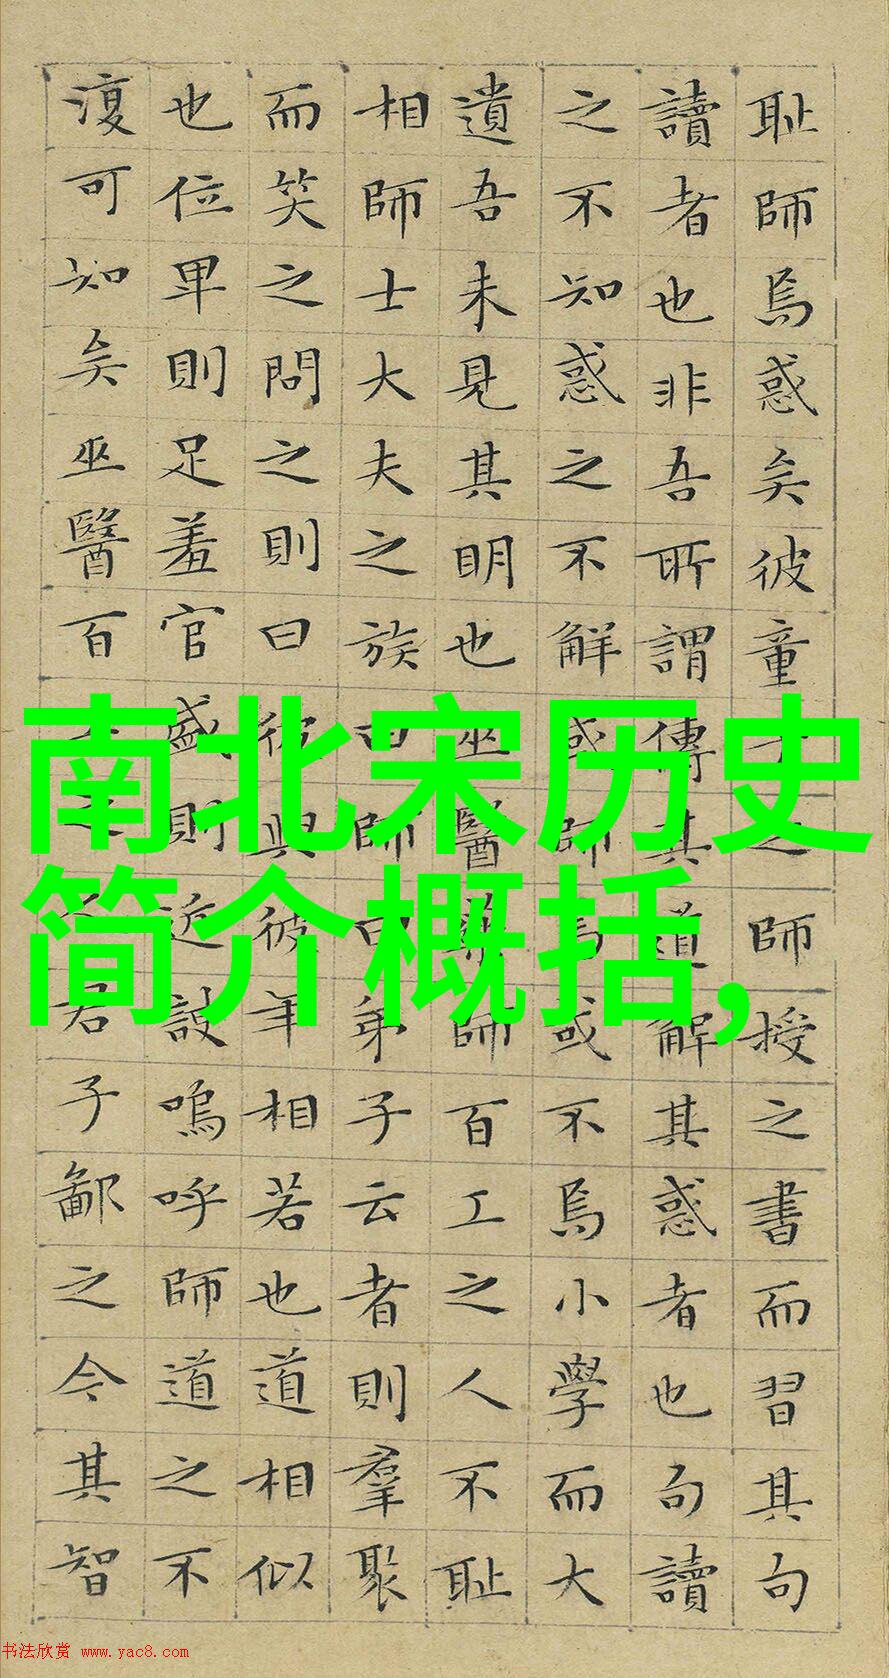 南北宋历史
简介概括,
耻師焉惑矣彼童之師授之書而習其句
讀者也非吾所謂傳其道解其惑者也句讀
之不知惑之不解或師焉或不焉小學而大
遺吾未見其明也巫醫師百工之人不耻
相師士大夫之族曰師曰弟子云者則羣聚
而笑之問之則曰彼與彼年相若也道相似
也位卑則足羞官盛則近諛嗚呼師道之不
復可知矣巫醫百君子鄙之今其智
书法欣赏 www.yac8.com